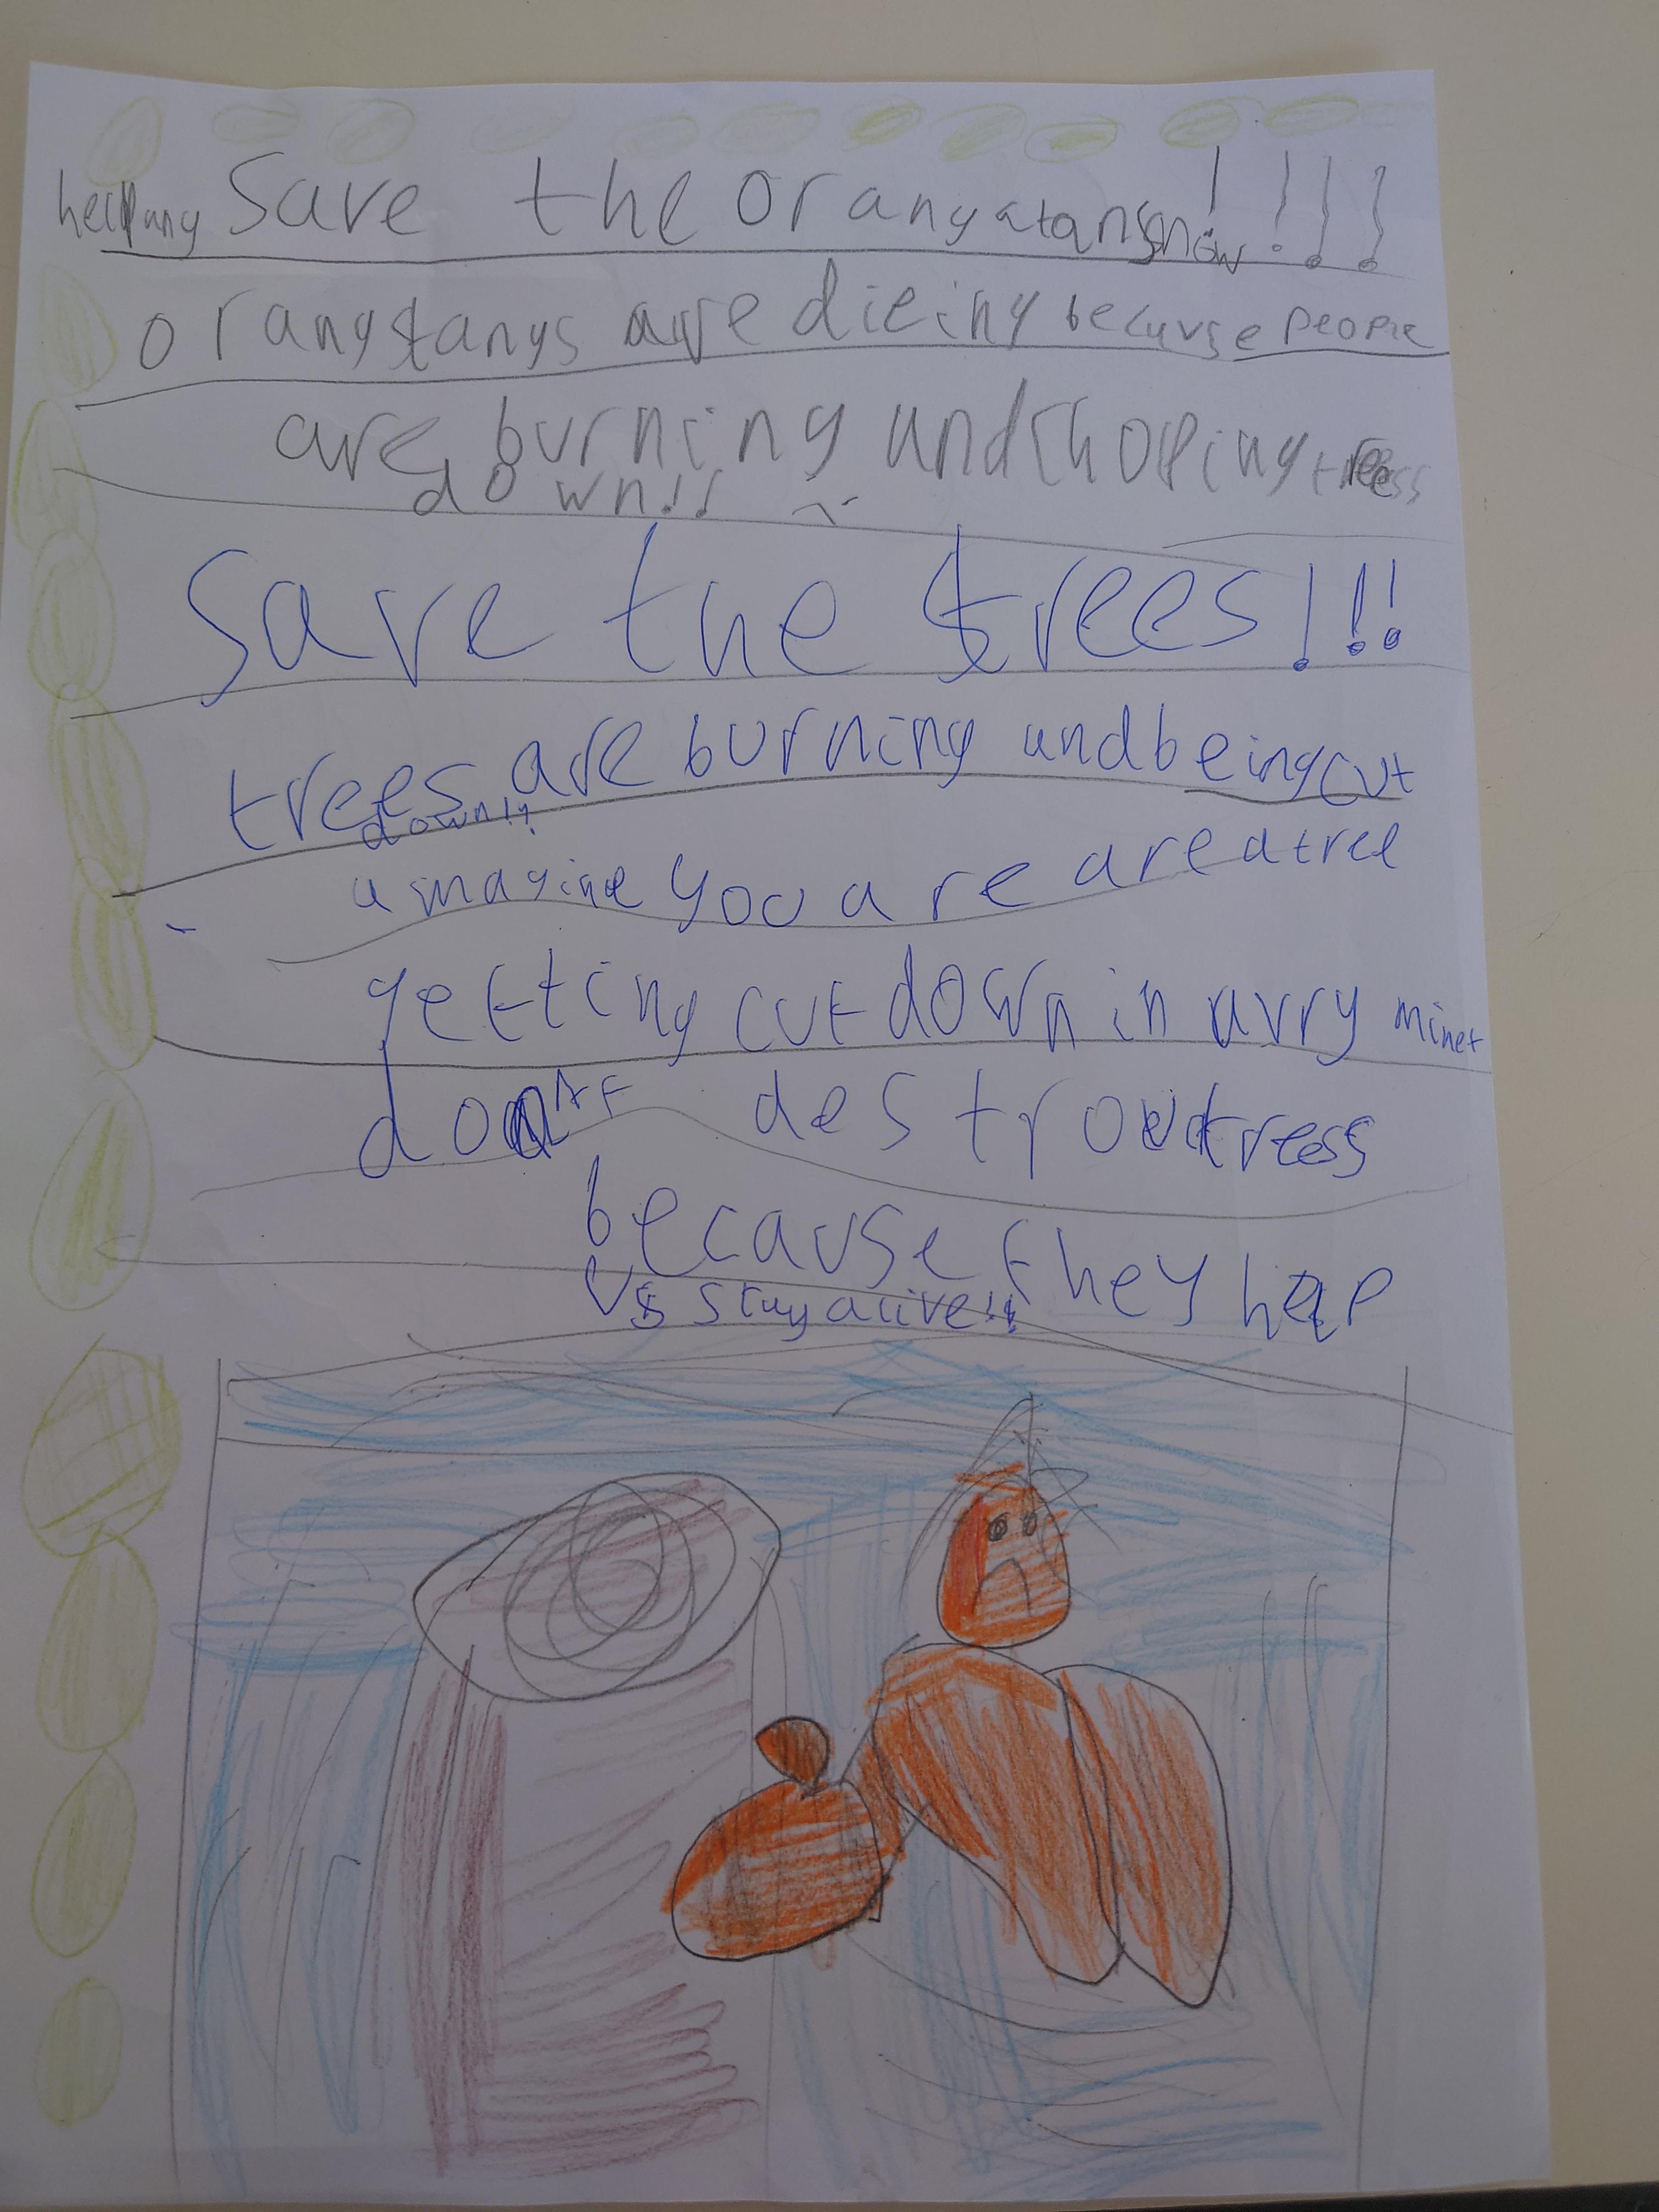 save the orangatangs now!!!!
orangtangs are dieing because people
are burning and choping treess
down!!
save the trees!!!
trees are burning and being cut
down!!
amagine you are are a tree
getting cut down in avry minet
treess
because they help
us stay alive!!